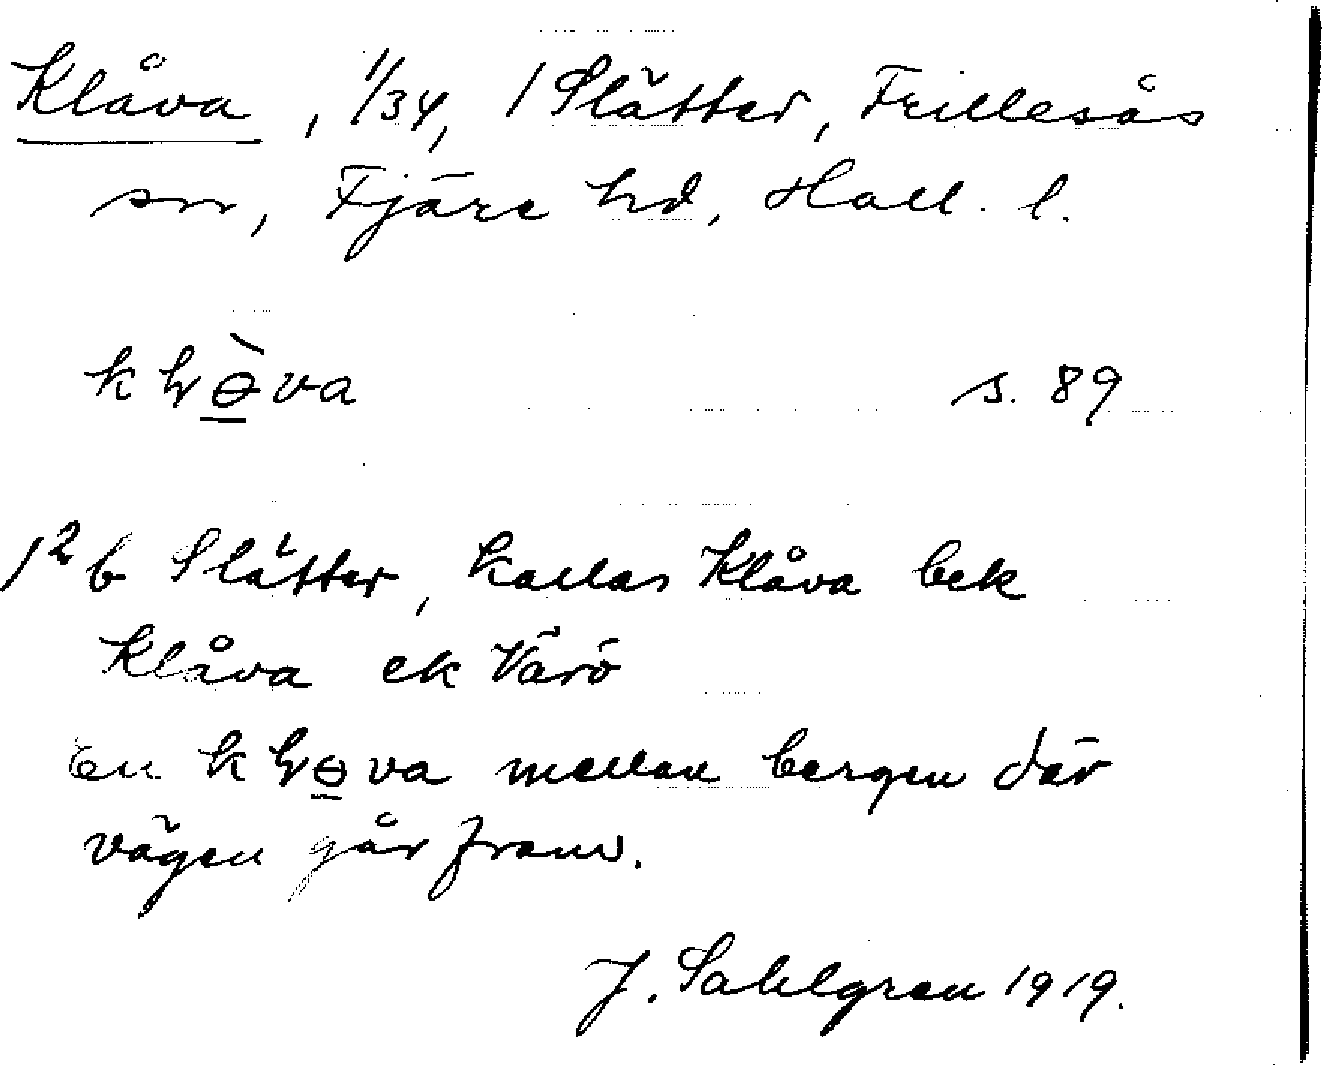 Klåva, 1/34, 1 Slätter, Frillesås
sn, Fjäre hd, Hall. l.
s. 89
1²b Slätter, kallas Klåva bek
Klåva ek Värö
En mellan bergen där
vägen går fram.
J. Sahlgren 1919.